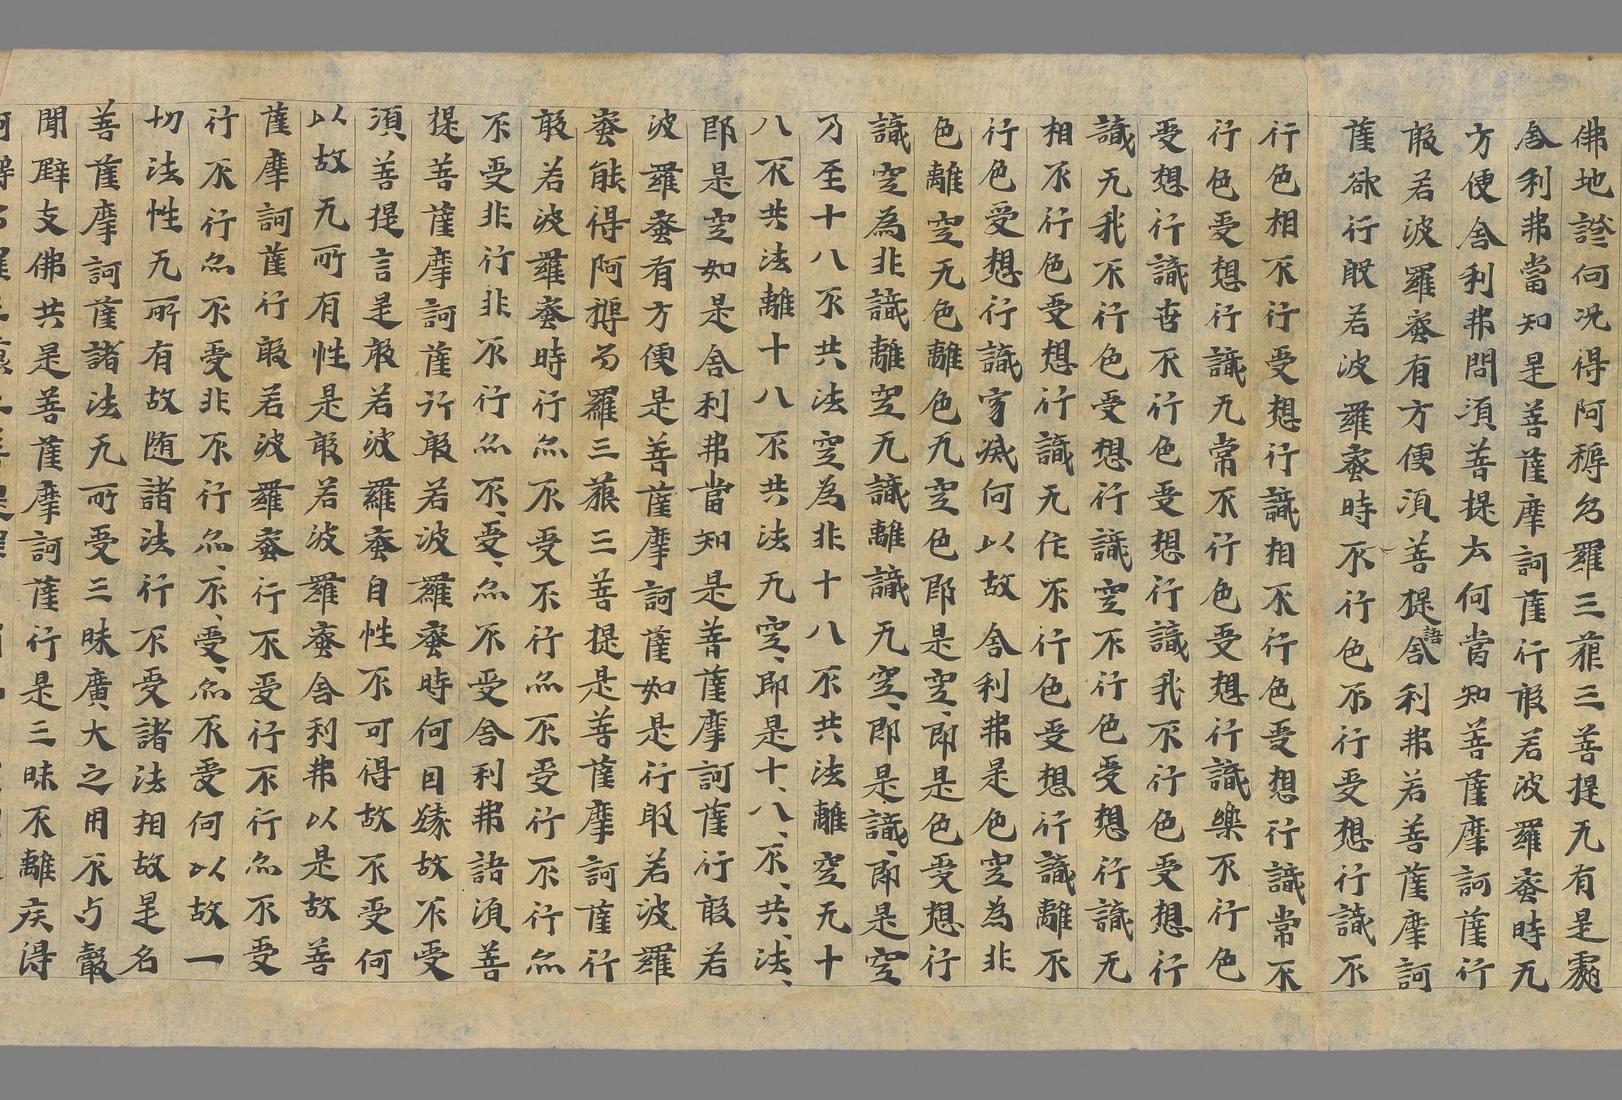 佛地證何況得阿耨多羅三藐三菩提无有是處
舍利弗當知是菩薩摩訶薩行般若波羅蜜時无
方便舍利弗問須菩提云何當知菩薩摩訶薩行
般若波羅蜜有方便須菩提語舍利弗若菩薩摩訶
薩欲行般若波羅蜜時不行色不行受想行識不
行色相不行受想行識相不行色受想行識常不
行色受想行識无常不行色受想行識樂不行色
受想行識苦不行色受想行識我不行色受想行
識无我不行色受想行識空不行色受想行識无
相不行色受想行識无作不行色受想行識離不
行色受想行識寂滅何以故舍利弗是色空為非
色離空无色離色无空色即是空、即是色受想行
識空為非識離空无識離識无空、即是、識、即是空
乃至十八不共法空為非十八不共法離空无十
八不共法離十八不共法无空、即是十、八、不、共、法、
即是空如是舍利弗當知是菩薩摩訶薩行般若
波羅蜜有方便是菩薩摩訶薩如是行般若波羅
蜜能得阿耨多羅三藐三菩提是菩薩摩訶薩行
般若波羅蜜時行亦不受不行亦不受行不行亦
不受非行非不行亦不、受、亦不受舍利弗語須菩
提菩薩摩訶薩行般若波羅蜜時何因緣故不受
須菩提言是般若波羅蜜自性不可得故不受何
以故无所有性是般若波羅蜜舍利弗以是故菩
薩摩訶薩行般若波羅蜜行不受行不行亦不受
行不行亦不受非不行亦、不、受、亦不受何以故一
切法性无所有故隨諸法行不受諸法相故是名
菩薩摩訶薩諸法无所受三昧廣大之用不与聲
聞辟支佛共是菩薩摩訶薩行是三昧不離疾得